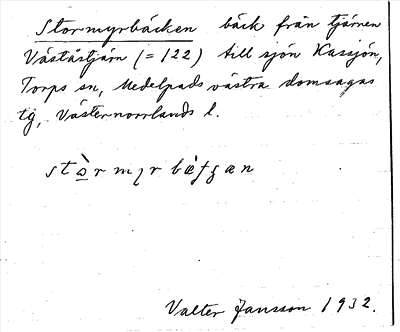 Stormyrbäcken bäck från tjärnen
Väståstjärn (= 122) till sjön Kassjön,
Torps sn, Medelpads västra domsagas
tg, Västernorrlands l.
Valter Jansson 1932.